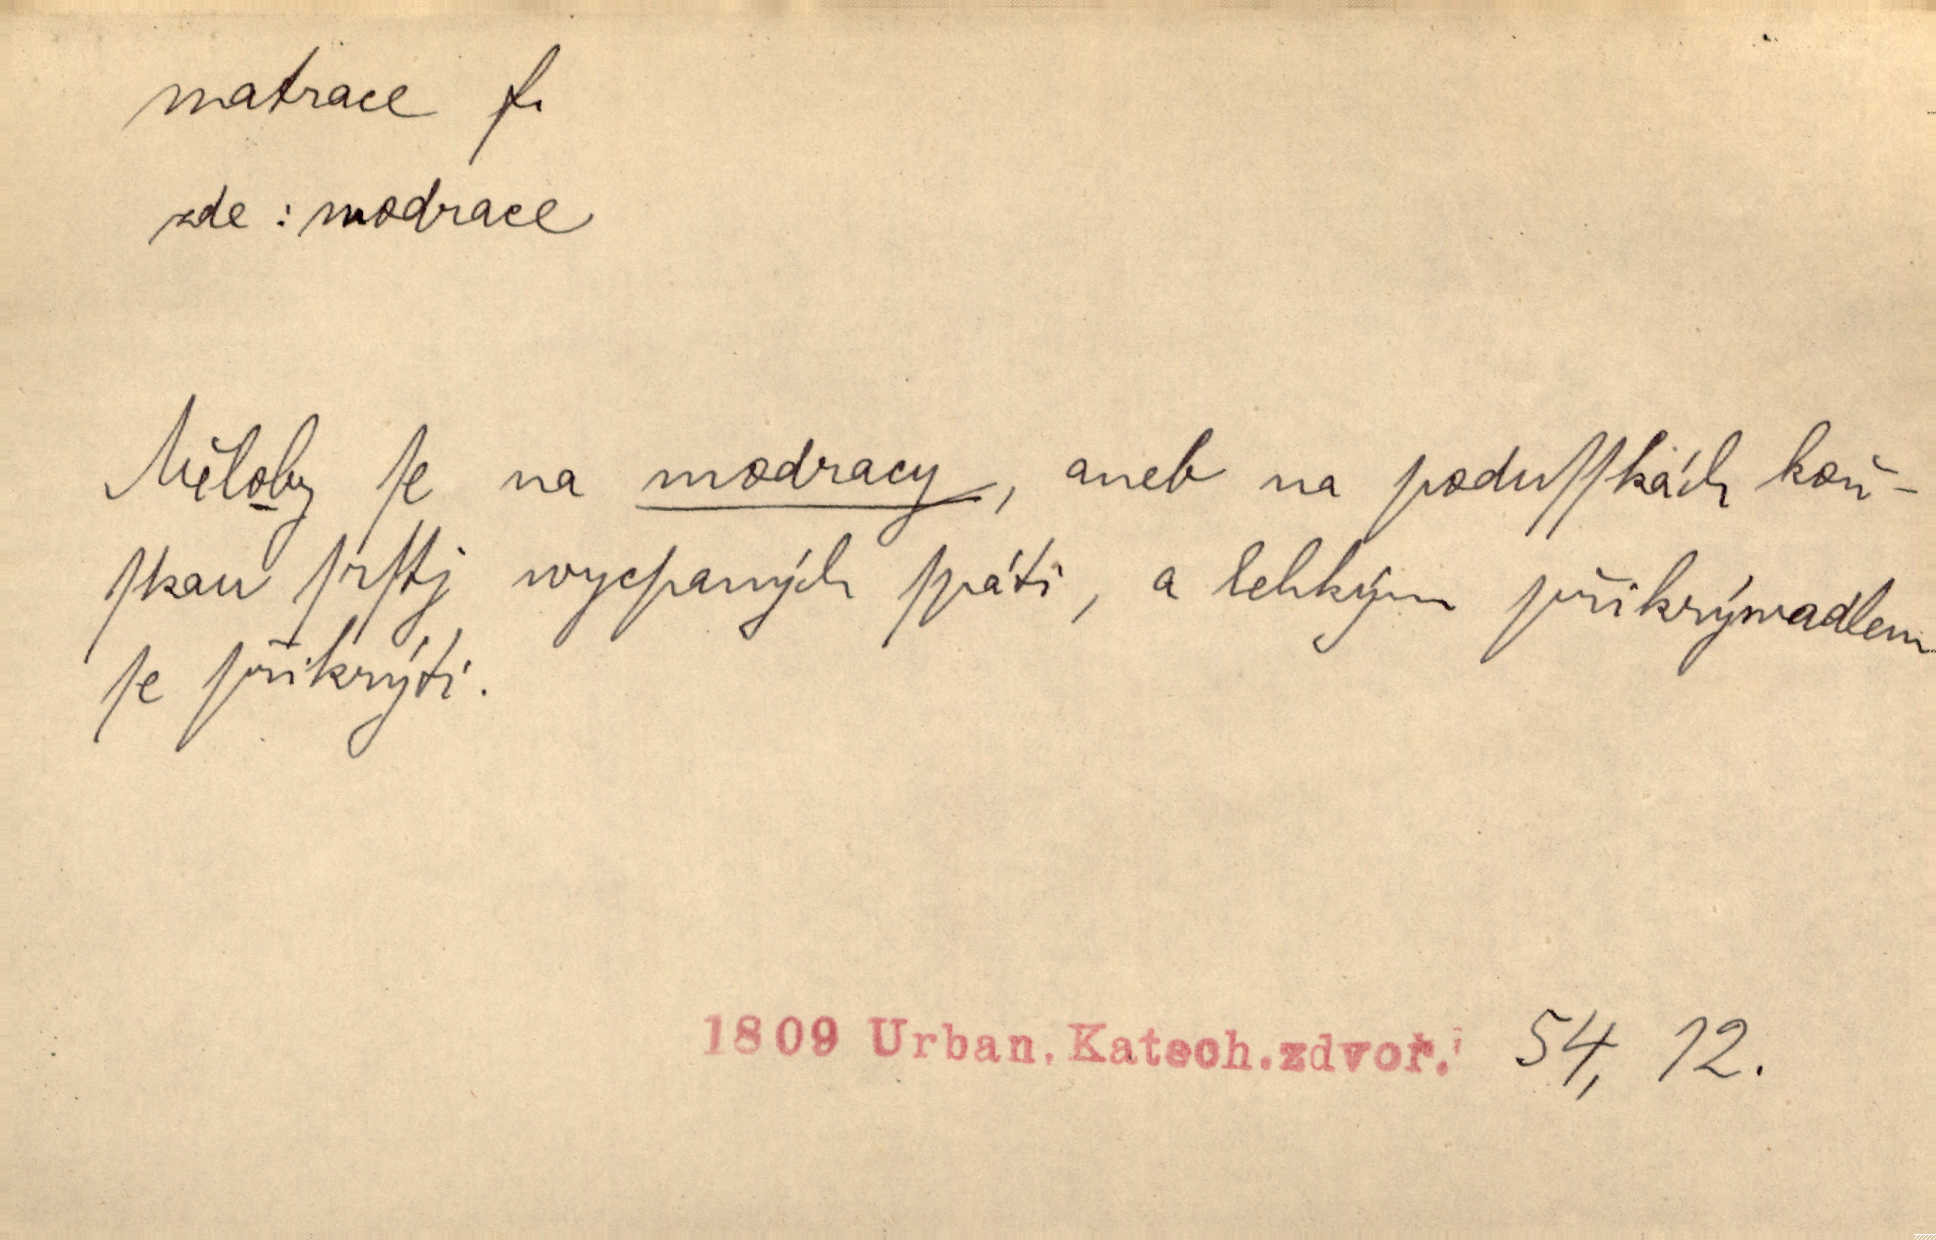 matrace f.
zde : modrace
Měloby ſe na modracy, aneb na poduſſkách koň-
ſkau ſrſtj wycpaných ſpáti, a lehkým přikrýwadlem
ſe přikrýti.
1809 Urban. Katech. zdvoř. 54, 12.